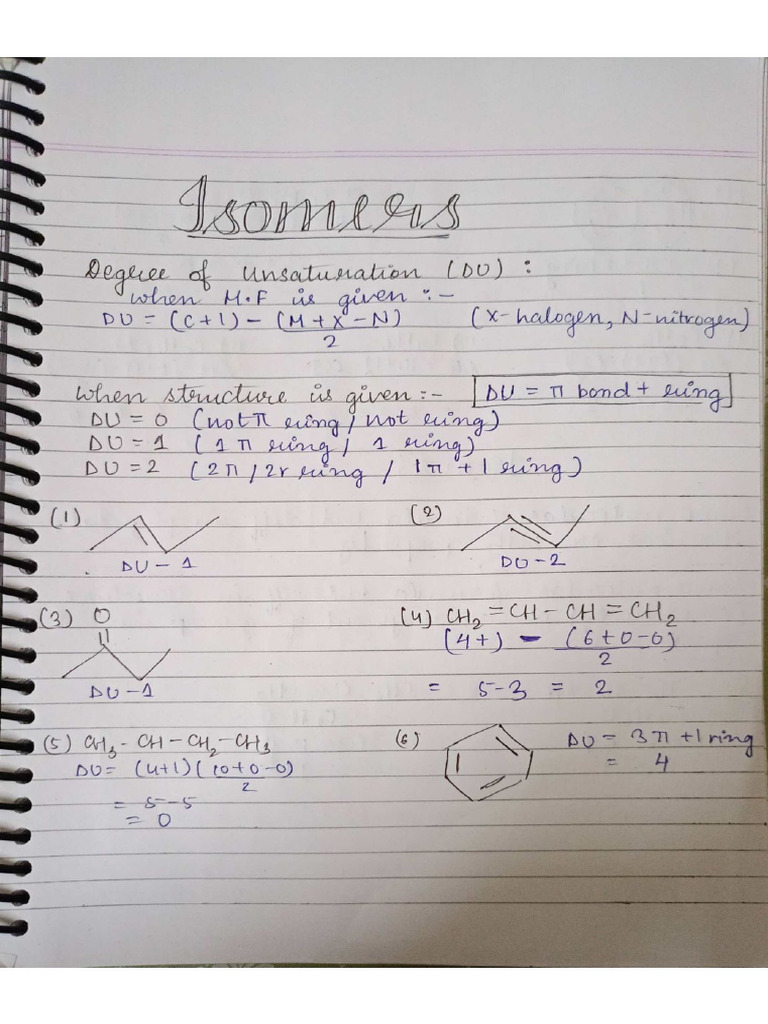 Isomers
Degree of Unsaturation (DU) :
when M.F is given :-
DU = (C+1) - (M+X-N) (X-halogen, N-nitrogen)
2
when structure is given :- DU = π bond + ring
DU = 0 (not π ring / not ring)
DU = 1 (1 π ring / 1 ring)
DU = 2 (2π / 2r ring / 1π + 1 ring)
(1) (2)
DU - 1 DU - 2
(3) O (4) CH2 = CH - CH = CH2
(4+) - (6+0-0)
2
DU - 1 = 5-3 = 2
(5) CH3 - CH - CH2 - CH3 (6) DU = 3π + 1 ring
DU = (4+1) (10+0-0) = 4
2
= 5-5
= 0